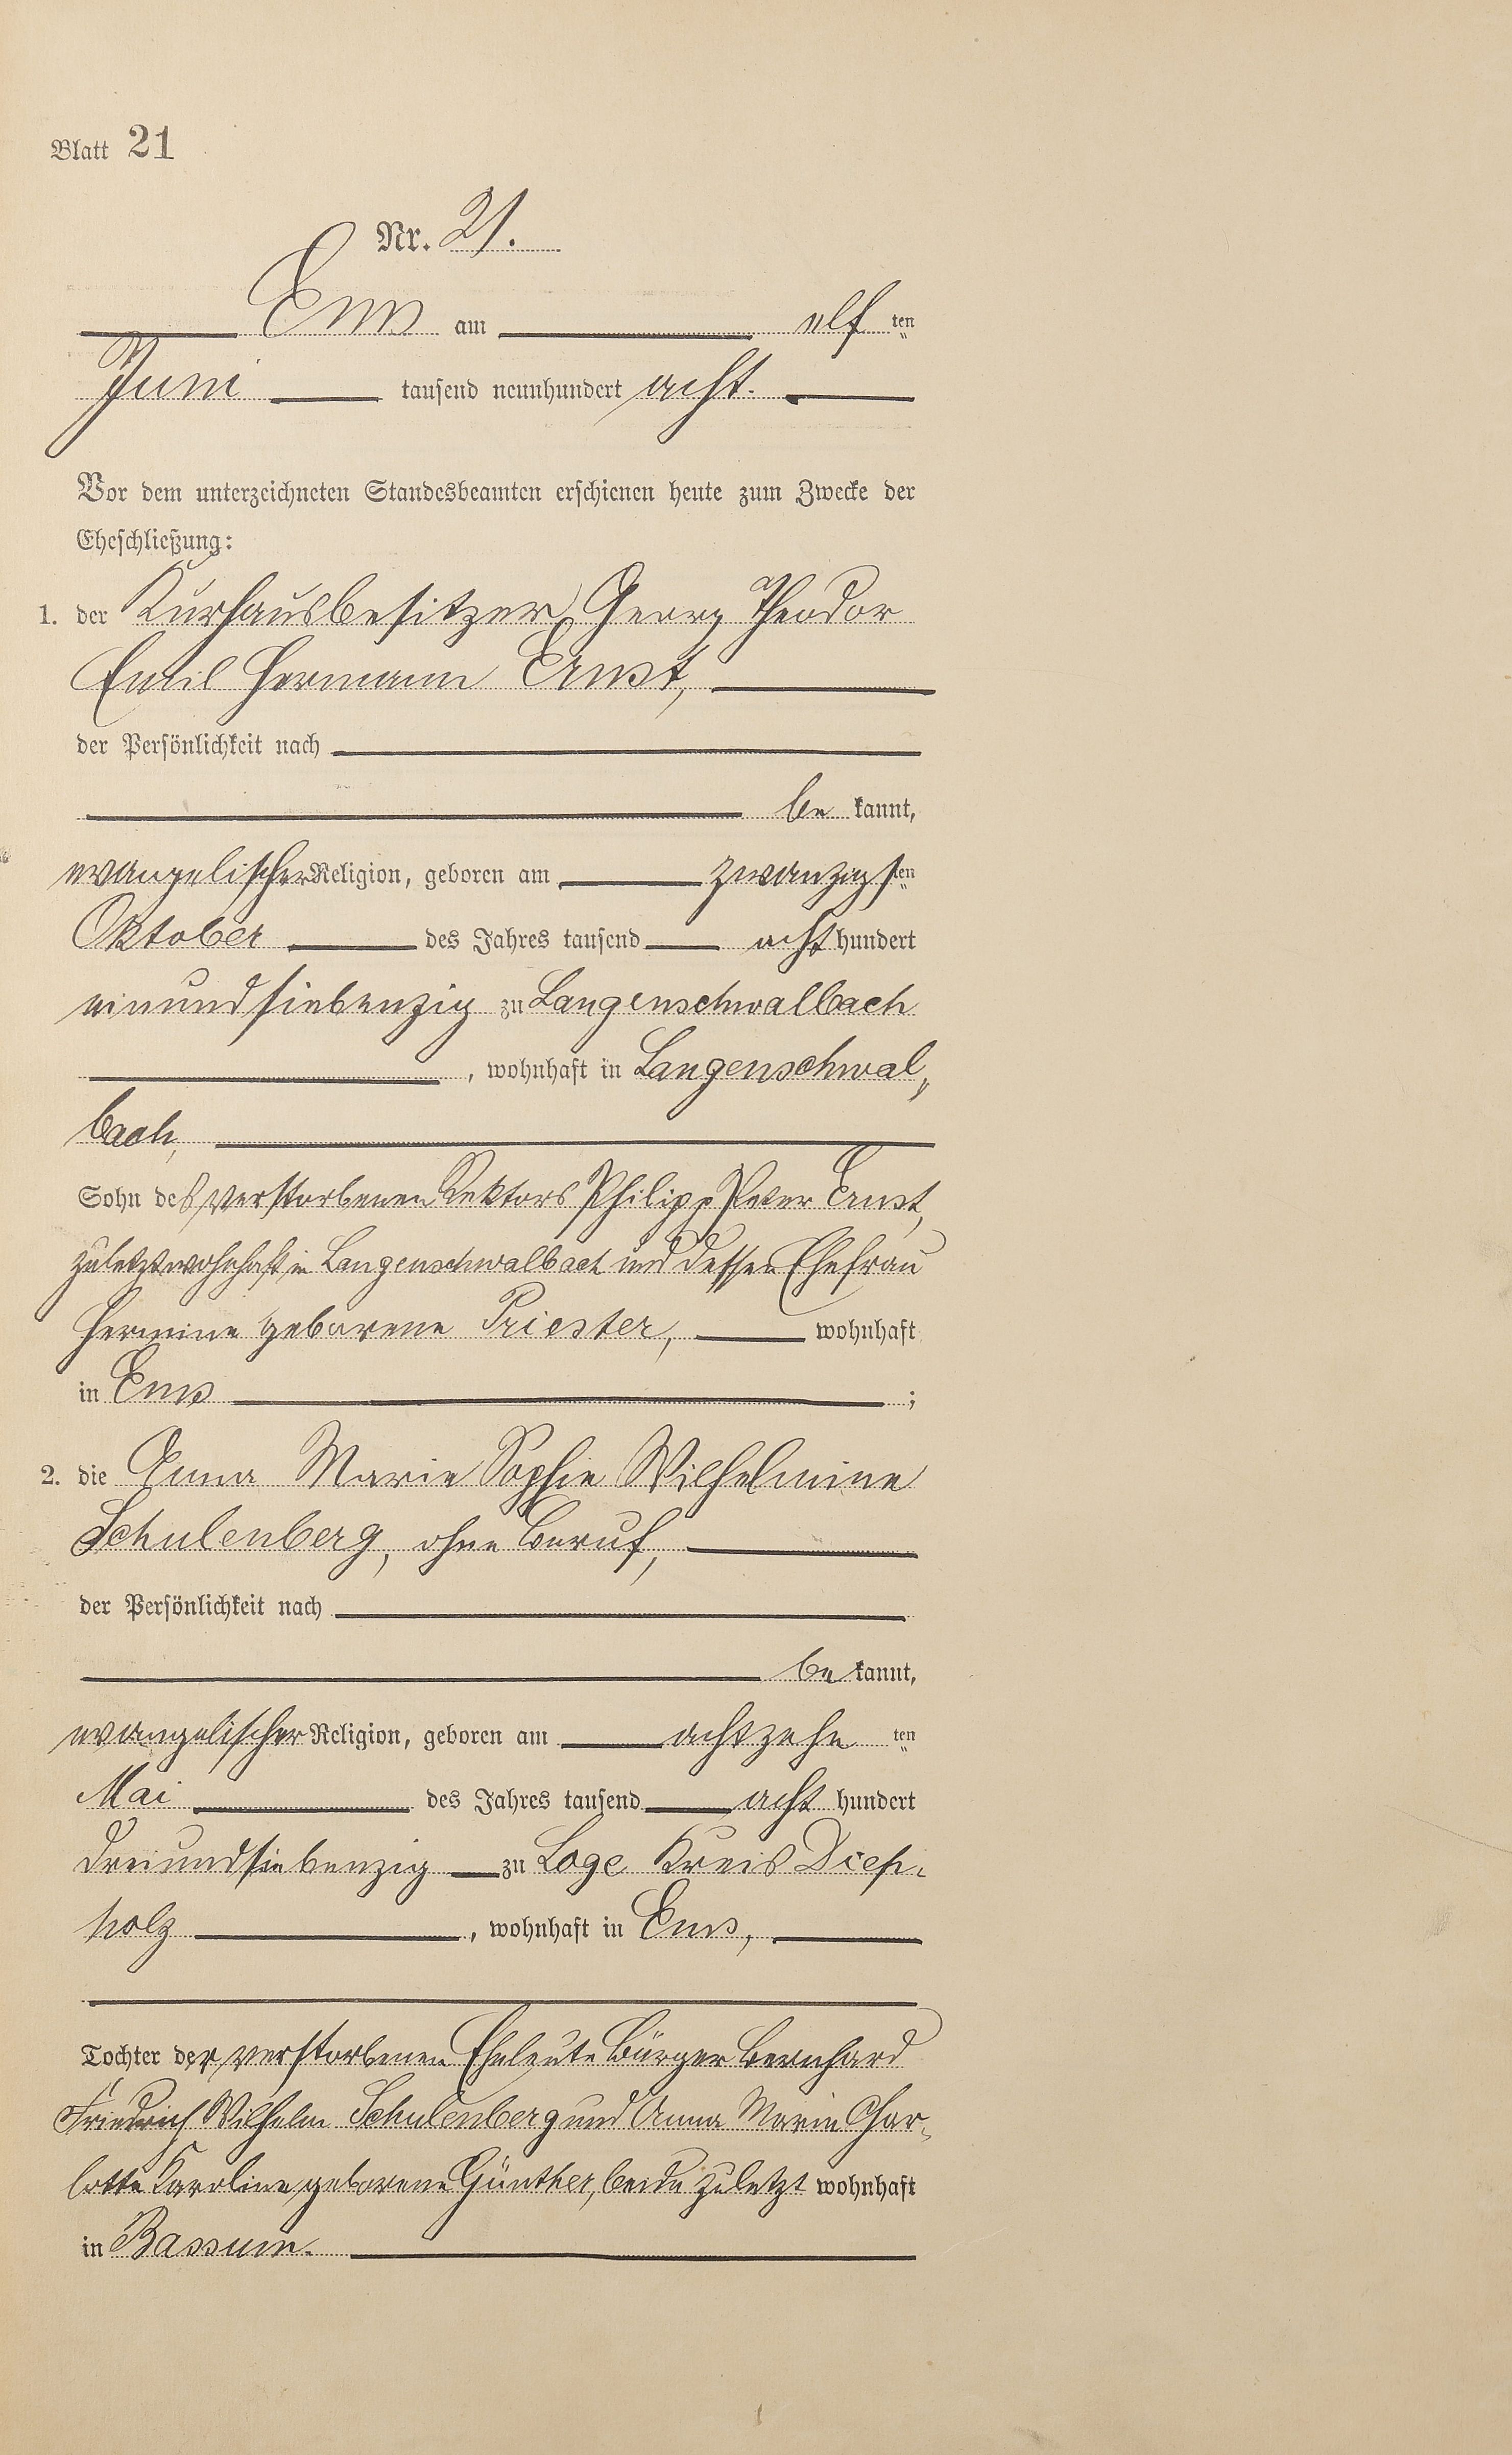 Blatt 21
Nr. 21.
Ems am elf ten
Juni tausend neunhundert acht.
Vor dem unterzeichneten Standesbeamten erschienen heute zum Zwecke der
Eheschließung:
1. der Kurhausbesitzer Georg Theodor
Emil Hermann Ernst,
der Persönlichkeit nach
be kannt,
evangelischer Religion, geboren am zwanzigsten
Oktober des Jahres tausend acht hundert
einundsiebenzig zu Langenschwalbach
, wohnhaft in Langenschwal„
bach,
Sohn des verstorbenen Rektors Philipp Peter Ernst,
zuletzt wohnhaft in Langenschwalbach und dessen Ehefrau
Hermine geborene Priester, wohnhaft
in Ems ;
2. die Anna Marie Sophie Wilhelmine
Schulenberg, ohne Beruf,
der Persönlichkeit nach
be kannt,
evangelischer Religion, geboren am achtzehn ten
Mai des Jahres tausend acht hundert
dreiundsiebenzig zu Loge Kreis Diep-
holz , wohnhaft in Ems,
Tochter der verstorbenen Eheleute Bürger Bernhard
Friedrich Wilhelm Schulenberg und Anna Marie Char-
lotte Karoline geborene Günther, beide zuletzt wohnhaft
in Bassum.